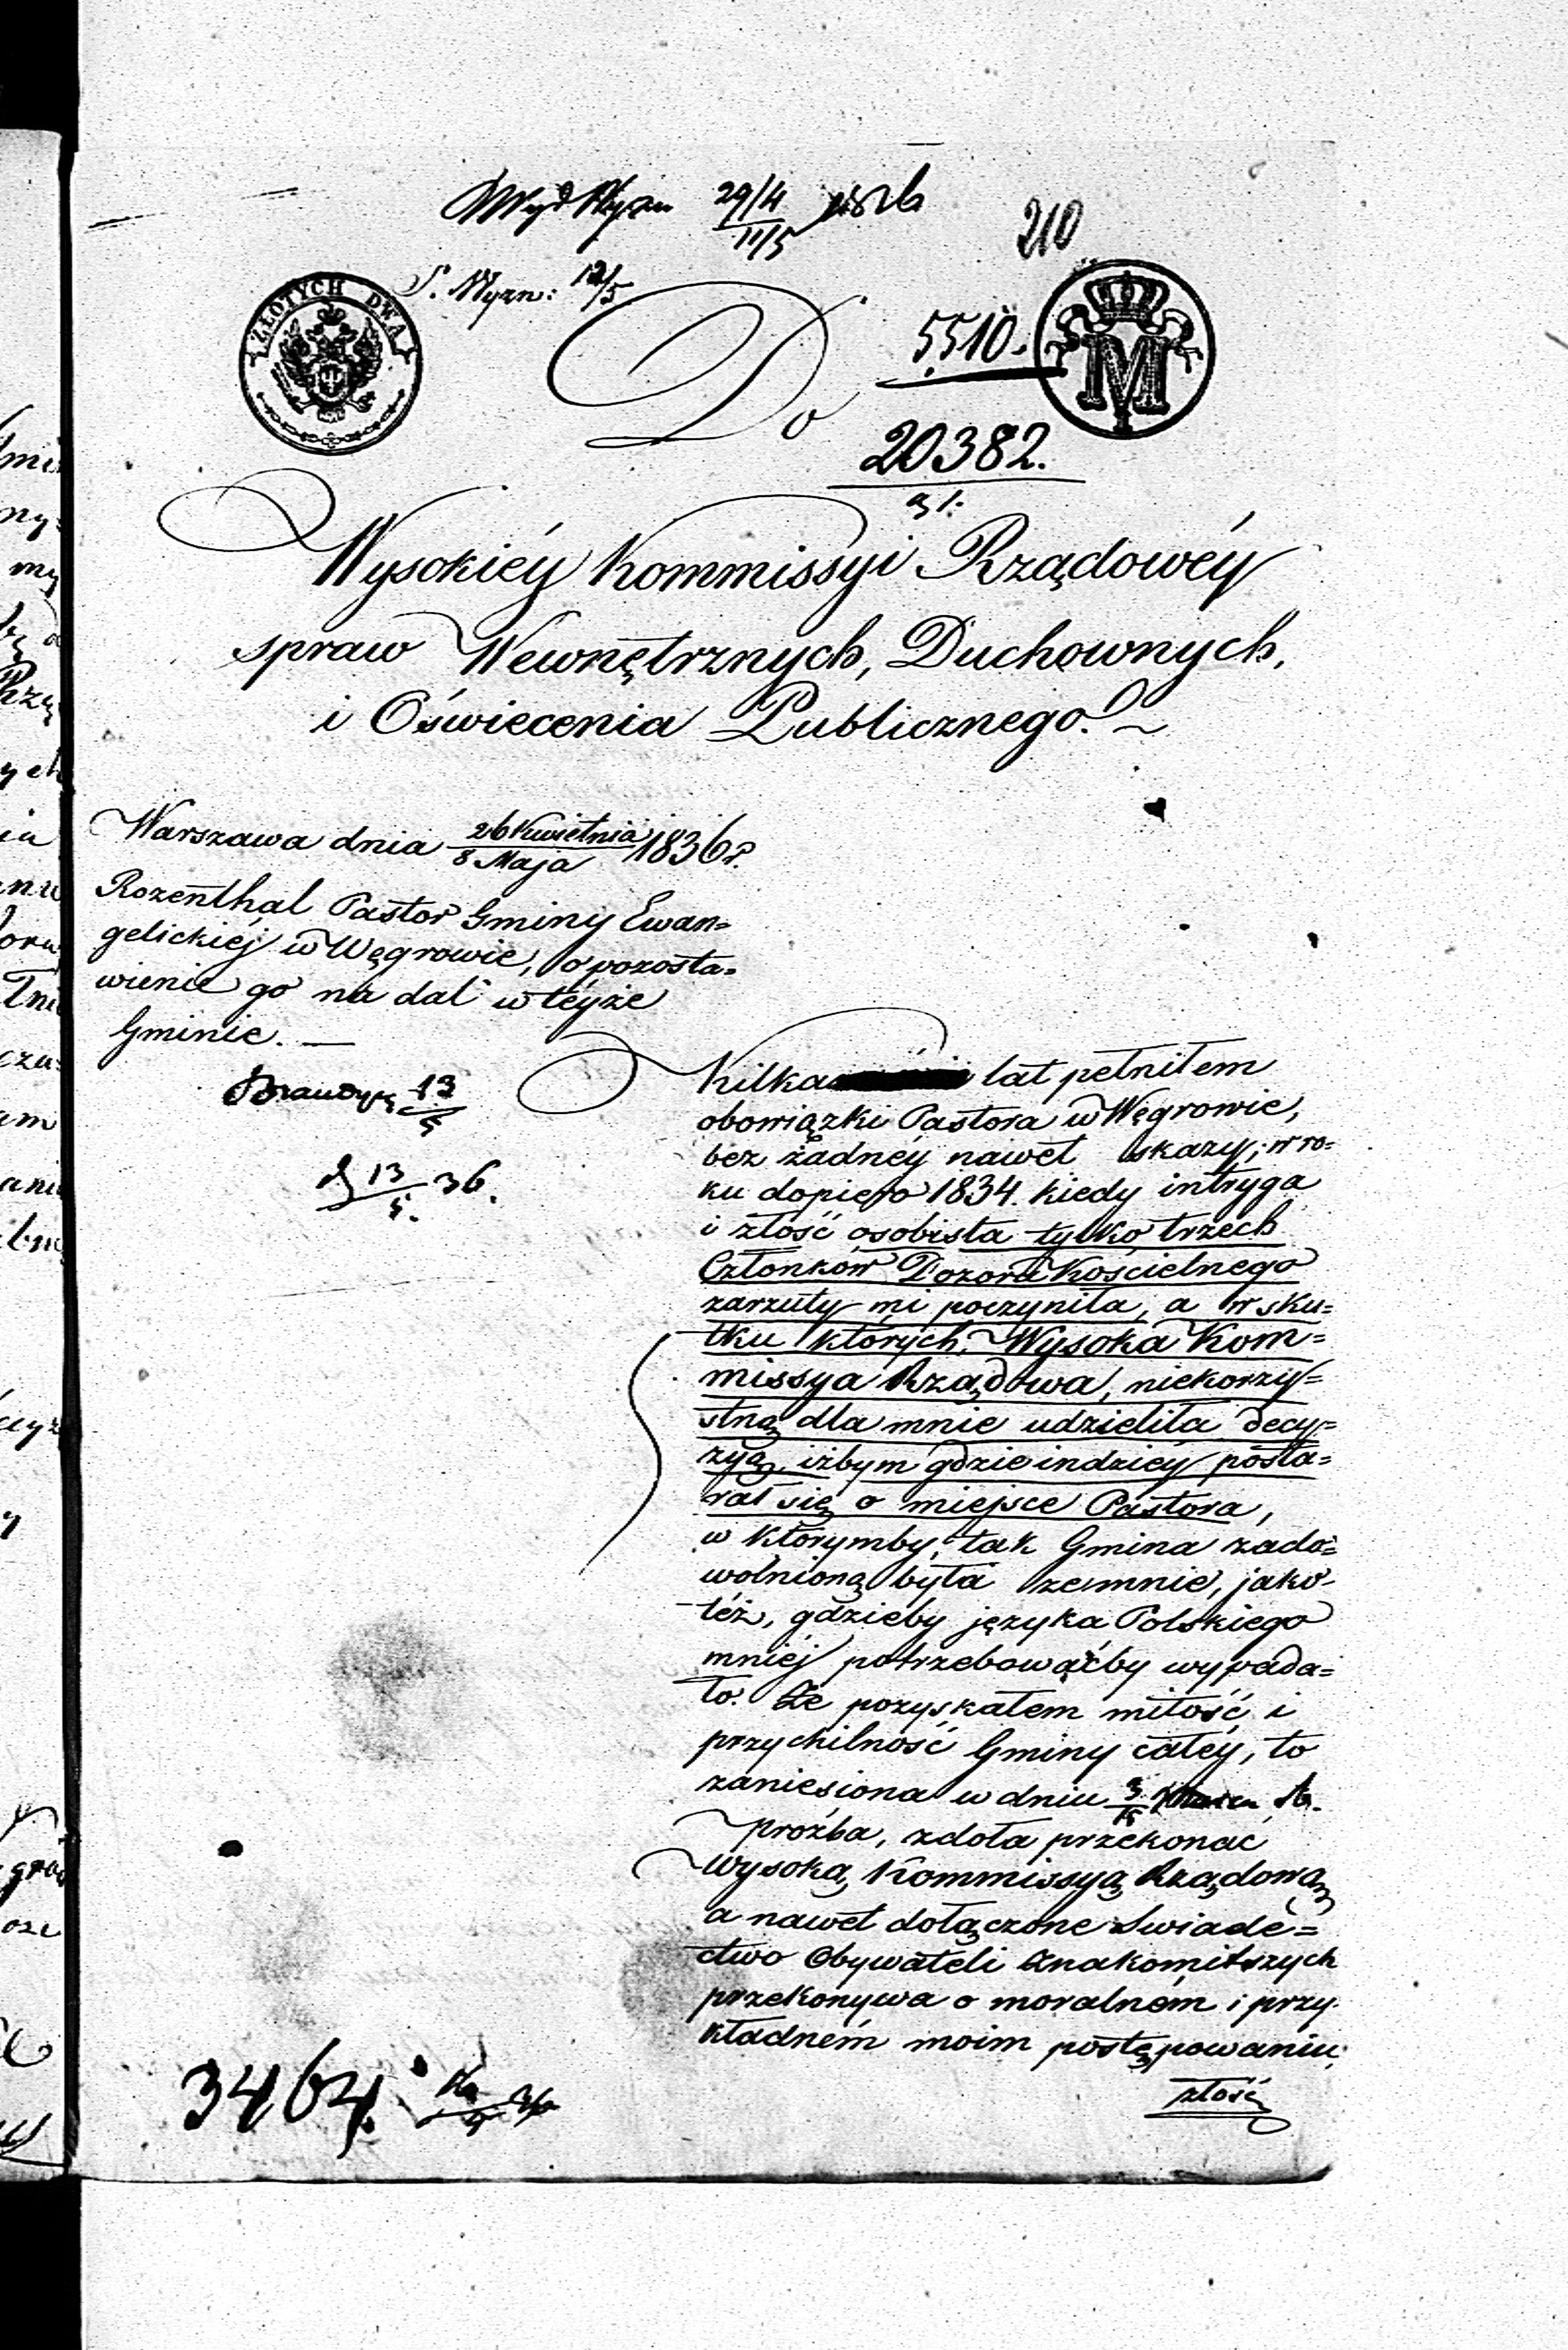 29/4
11/5
210
S. Wyzn: 12/5
ZŁOTYCH DWA
Do
5510.
M
20382.
Wysokiéy Kommissyi Rządowéy
spraw Wewnętrznych, Duchownych,
i Oświecenia Publicznego.
Warszawa dnia 26 Kwietnia / 8 Maja 1836 r.
Rozenthal Pastor Gminy Ewan=
gelickiéj w Węgrowie, o pozosta=
wienie go na dal w téyże
Gminie. —
13/5
13/5 36.
Kilka lat pełniłem
obowiązki Pastora w Węgrowie,
bez żadnéy nawet skazy; w ro=
ku dopiero 1834. kiedy intryga
i złość osobista tylko trzech
Członków Dozoru Kościelnego
zarzuty mi poczyniła, a w sku=
tku których, Wysoka Kom=
missya Rządowa, niekorzy=
stną dla mnie udzieliła decy=
zyą, iżbym gdzieindziéy posta=
rał się o miejsce Pastora,
w którymby, tak Gmina zado=
wolnioną była ze mnie, jako-
téż, gdzieby języka Polskiego
mniéj potrzebowaćby wypada=
ło. Że pozyskałem miłość i
przychilność Gminy całéy, to
zaniesiona w dniu
proźba, zdoła przekonać
Wysoką Kommissyą Rządową,
a nawet dołączone Swiade=
ctwo Obywateli znakomitszych
przekonywa o moralném i przy=
kładném moim postępowaniu,
złość
3464.